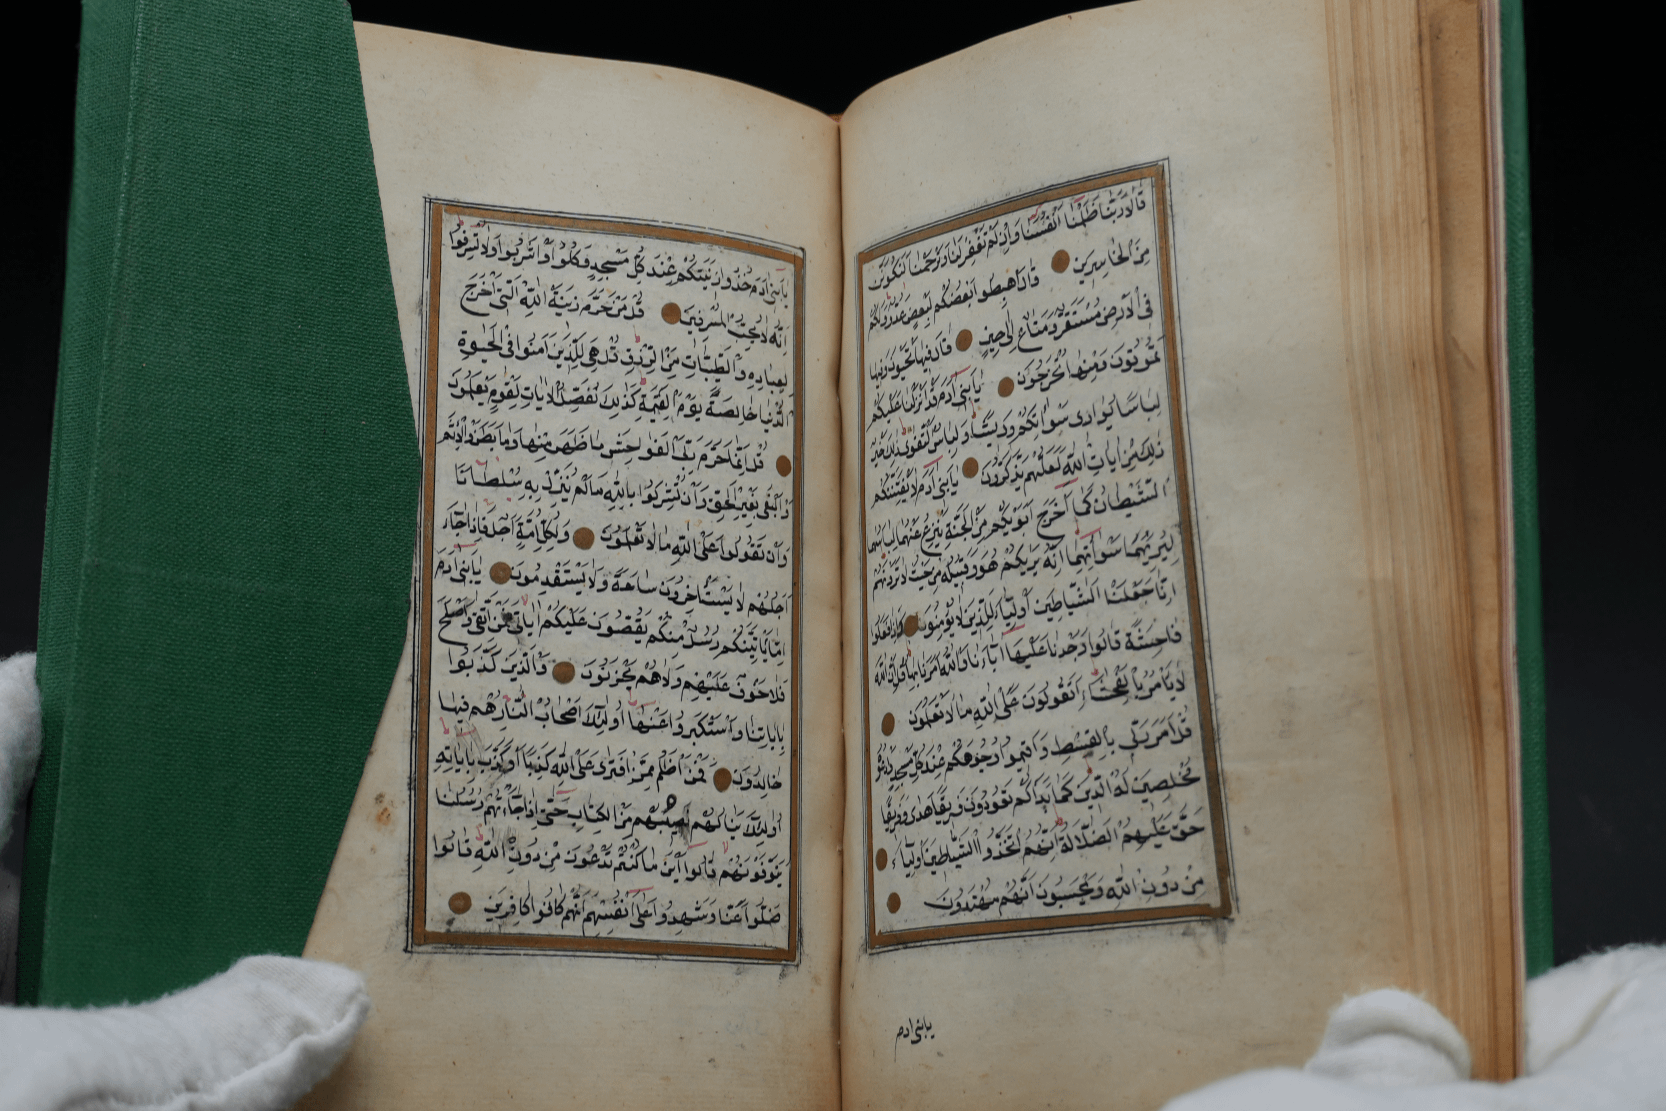 قَالَا رَبَّنَا ظَلَمْنَا أَنْفُسَنَا وَإِنْ لَمْ تَغْفِرْ لَنَا وَتَرْحَمْنَا لَنَكُونَنَّ
مِنَ الْخَاسِرِينَ قَالَ اهْبِطُوا بَعْضُكُمْ لِبَعْضٍ عَدُوٌّ وَلَكُمْ
فِي الْأَرْضِ مُسْتَقَرٌّ وَمَتَاعٌ إِلَى حِينٍ قَالَ فِيهَا تَحْيَوْنَ وَفِيهَا
تَمُوتُونَ وَمِنْهَا تُخْرَجُونَ يَابَنِي آدَمَ قَدْ أَنْزَلْنَا عَلَيْكُمْ
لِبَاسًا يُوَارِي سَوْآتِكُمْ وَرِيشًا وَلِبَاسُ التَّقْوَى ذَلِكَ خَيْرٌ
ذَلِكَ مِنْ آيَاتِ اللَّهِ لَعَلَّهُمْ يَذَّكَّرُونَ يَابَنِي آدَمَ لَا يَفْتِنَنَّكُمُ
الشَّيْطَانُ كَمَا أَخْرَجَ أَبَوَيْكُمْ مِنَ الْجَنَّةِ يَنْزِعُ عَنْهُمَا لِبَاسَهُمَا
لِيُرِيَهُمَا سَوْآتِهِمَا إِنَّهُ يَرَاكُمْ هُوَ وَقَبِيلُهُ مِنْ حَيْثُ لَا تَرَوْنَهُمْ
إِنَّا جَعَلْنَا الشَّيَاطِينَ أَوْلِيَاءَ لِلَّذِينَ لَا يُؤْمِنُونَ وَإِذَا فَعَلُوا
فَاحِشَةً قَالُوا وَجَدْنَا عَلَيْهَا آبَاءَنَا وَاللَّهُ أَمَرَنَا بِهَا قُلْ إِنَّ اللَّهَ
لَا يَأْمُرُ بِالْفَحْشَاءِ أَتَقُولُونَ عَلَى اللَّهِ مَا لَا تَعْلَمُونَ
قُلْ أَمَرَ رَبِّي بِالْقِسْطِ وَأَقِيمُوا وُجُوهَكُمْ عِنْدَ كُلِّ مَسْجِدٍ وَادْعُوهُ
مُخْلِصِينَ لَهُ الدِّينَ كَمَا بَدَأَكُمْ تَعُودُونَ فَرِيقًا هَدَى وَفَرِيقًا
حَقَّ عَلَيْهِمُ الضَّلَالَةُ إِنَّهُمُ اتَّخَذُوا الشَّيَاطِينَ أَوْلِيَاءَ
مِنْ دُونِ اللَّهِ وَيَحْسَبُونَ أَنَّهُمْ مُهْتَدُونَ
يابنى ادم
يَابَنِي آدَمَ خُذُوا زِينَتَكُمْ عِنْدَ كُلِّ مَسْجِدٍ وَكُلُوا وَاشْرَبُوا وَلَا تُسْرِفُوا
إِنَّهُ لَا يُحِبُّ الْمُسْرِفِينَ قُلْ مَنْ حَرَّمَ زِينَةَ اللَّهِ الَّتِي أَخْرَجَ
لِعِبَادِهِ وَالطَّيِّبَاتِ مِنَ الرِّزْقِ قُلْ هِيَ لِلَّذِينَ آمَنُوا فِي الْحَيٰوةِ
الدُّنْيَا خَالِصَةً يَوْمَ الْقِيٰمَةِ كَذَلِكَ نُفَصِّلُ الْآيَاتِ لِقَوْمٍ يَعْلَمُونَ
قُلْ إِنَّمَا حَرَّمَ رَبِّيَ الْفَوَاحِشَ مَا ظَهَرَ مِنْهَا وَمَا بَطَنَ وَالْإِثْمَ
وَالْبَغْيَ بِغَيْرِ الْحَقِّ وَأَنْ تُشْرِكُوا بِاللَّهِ مَا لَمْ يُنَزِّلْ بِهِ سُلْطَانًا
وَأَنْ تَقُولُوا عَلَى اللَّهِ مَا لَا تَعْلَمُونَ وَلِكُلِّ أُمَّةٍ أَجَلٌ فَإِذَا جَاءَ
أَجَلُهُمْ لَا يَسْتَأْخِرُونَ سَاعَةً وَلَا يَسْتَقْدِمُونَ يَابَنِي آدَمَ
إِمَّا يَأْتِيَنَّكُمْ رُسُلٌ مِنْكُمْ يَقُصُّونَ عَلَيْكُمْ آيَاتِي فَمَنِ اتَّقَى وَأَصْلَحَ
فَلَا خَوْفٌ عَلَيْهِمْ وَلَا هُمْ يَحْزَنُونَ وَالَّذِينَ كَذَّبُوا
بِآيَاتِنَا وَاسْتَكْبَرُوا عَنْهَا أُولَئِكَ أَصْحَابُ النَّارِ هُمْ فِيهَا
خَالِدُونَ فَمَنْ أَظْلَمُ مِمَّنِ افْتَرَى عَلَى اللَّهِ كَذِبًا أَوْ كَذَّبَ بِآيَاتِهِ
أُولَئِكَ يَنَالُهُمْ نَصِيبُهُمْ مِنَ الْكِتَابِ حَتَّى إِذَا جَاءَتْهُمْ رُسُلُنَا
يَتَوَفَّوْنَهُمْ قَالُوا أَيْنَ مَا كُنْتُمْ تَدْعُونَ مِنْ دُونِ اللَّهِ قَالُوا
ضَلُّوا عَنَّا وَشَهِدُوا عَلَى أَنْفُسِهِمْ أَنَّهُمْ كَانُوا كَافِرِينَ